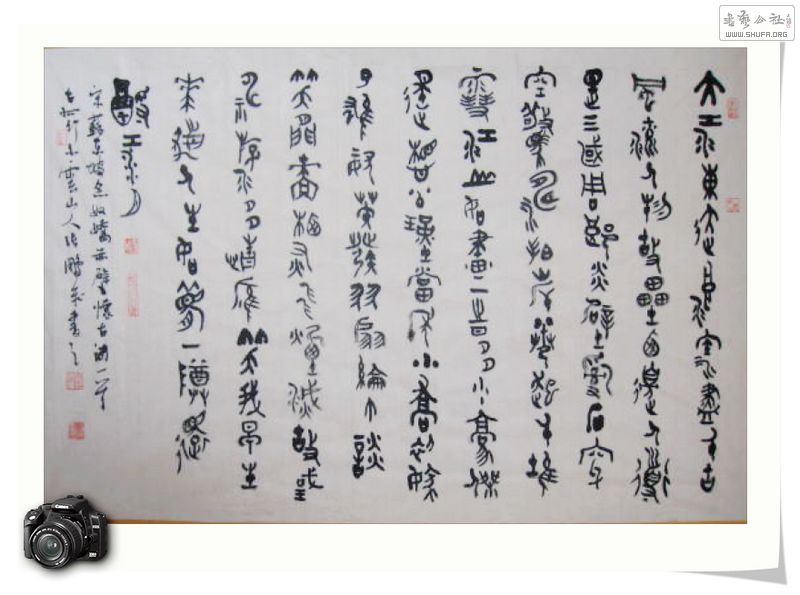 大江東去浪淘盡千古
風流人物故壘西邊人道
是三國周郎赤壁亂石穿
空驚濤拍岸捲起千堆
雪江山如畫一時多少豪傑
遙想公瑾當年小喬初嫁
了雄姿英發羽扇綸巾談
笑間檣櫓灰飛煙滅故國
神遊多情應笑我早生
華髮人生如夢一樽還
酹江月
宋蘇東坡念奴嬌赤壁懷古詞一首
雲山人書
書藝公社
WWW.SHUFA.ORG
Canon